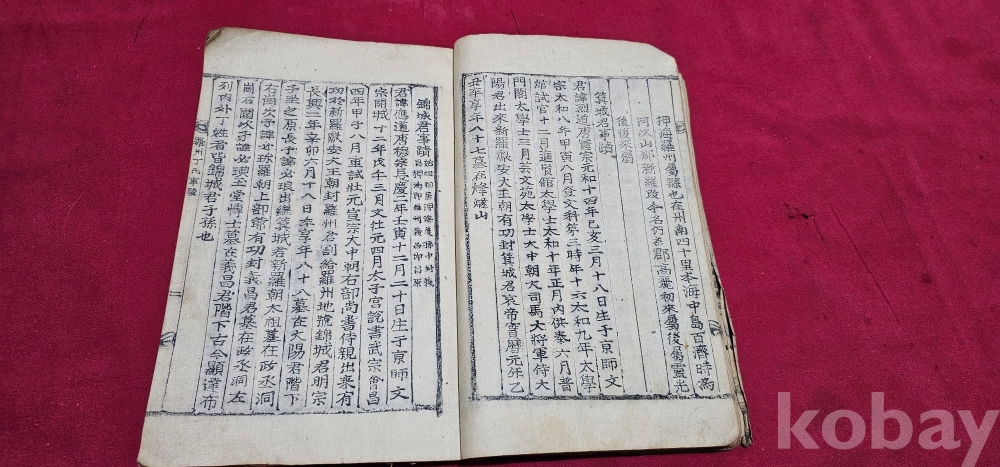 押海羅州屬縣也在州南四十里本海中島百濟時爲
阿次山郡新羅改今名仍爲郡高麗初來屬後屬靈光
後復來屬
箕城君事蹟
君諱烈道唐憲宗元和十四年己亥三月十八日生于京師文
宗太和八年甲寅八月登文科第三時年十六太和九年太學
館試官十二月進賢館太學士太和十年正月內供奉六月普
門閣太學士三月芸文苑太學士大中朝大司馬大將軍侍大
陽君出來新羅獻安大王朝有功封箕城君哀帝實曆元年乙
丑卒享年八十七墓石烽燧山
錦城君事蹟
君諱應道唐穆宗長慶二年壬寅十二月二十日生于京師文
宗開城十二年戊午三月文壯元四月太子宮說書武宗會昌
四年甲子八月重試壯元宣宗大中朝右部尚書侍親出來有
功於新羅獻安大王朝封羅州君割給羅州地號錦城君明宗
長興二年辛卯六月十八日卒享年八十八墓在大陽君階下
子坐之原長子諱必琅出繼箕城君新羅朝太祖墓在政丞洞
右崗次子諱必珎羅朝上部爺有功封義昌君墓在政丞洞左
崗右崗次子諱必璜玉堂博士墓在義昌君階下古今顯達布
列內外丁姓者皆錦城君子孫也
羅州丁氏事蹟
一
kobay